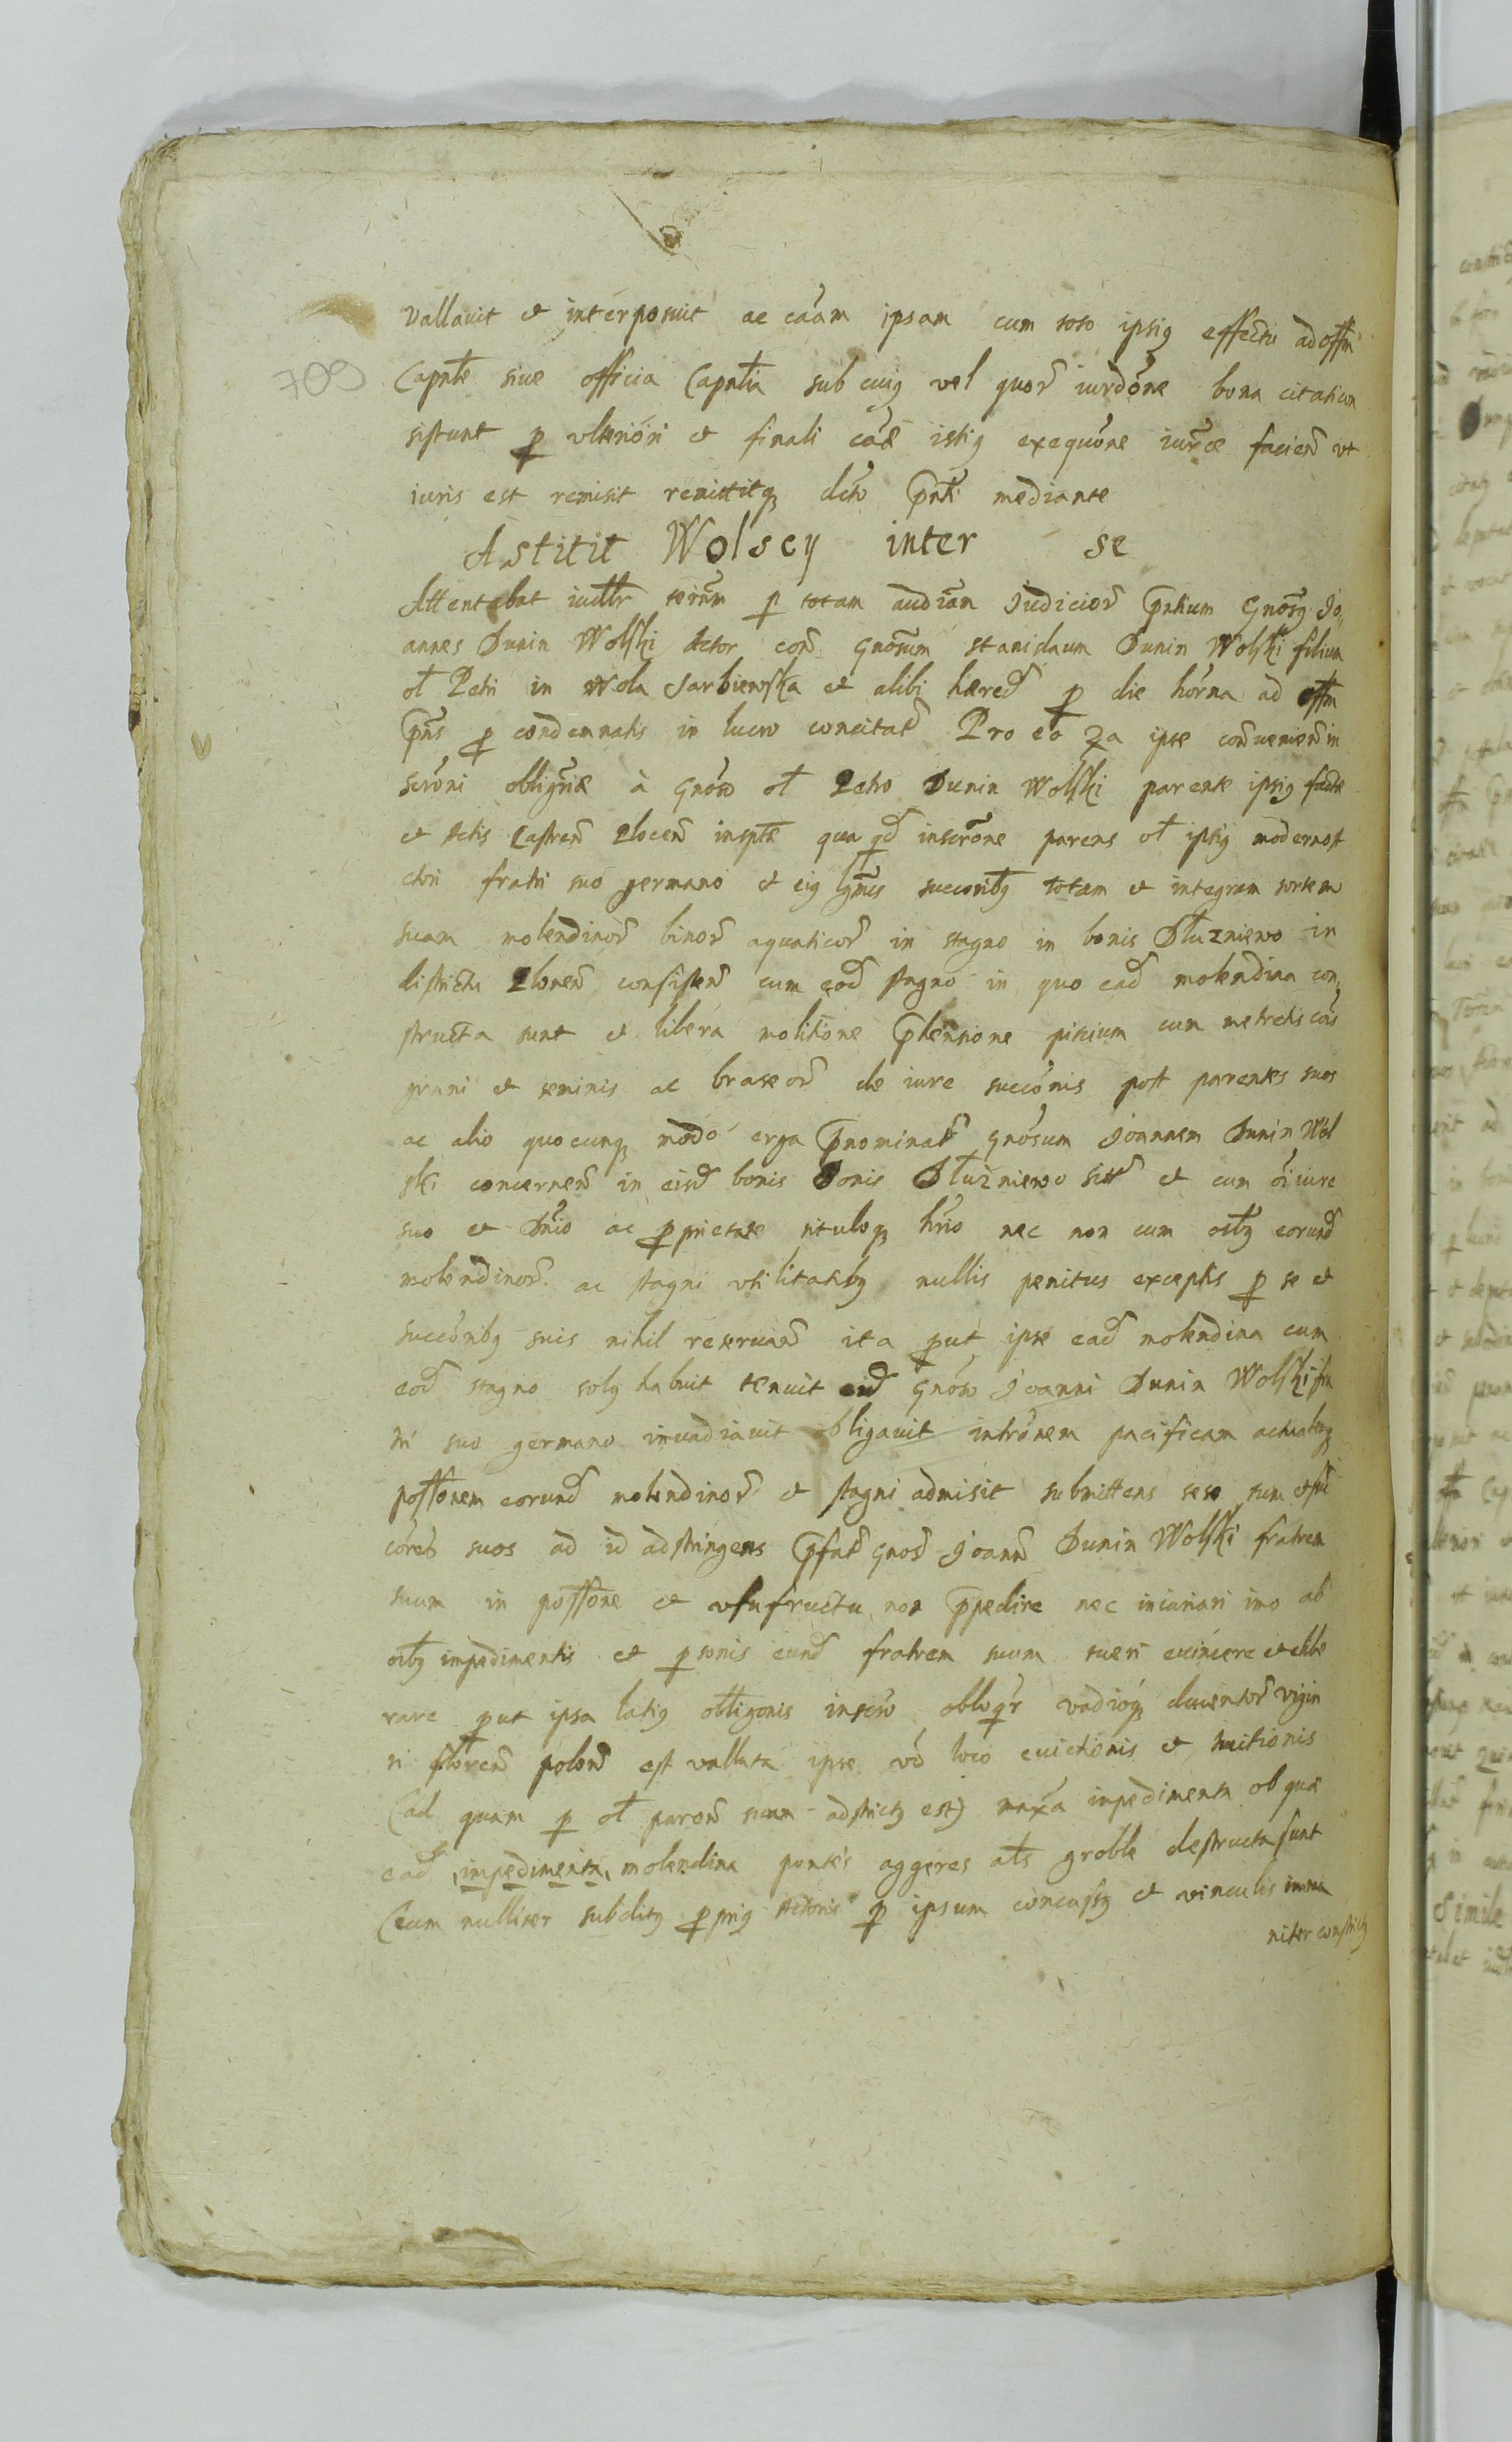 709
vallauit et interposuit ac cãam ipsam cum toto ipsiq effectu ad offm
Capnte siue officia Capntia sub cuiq vel quor iurdõne bona citatior
sistunt p vlteriori et finali cãae istiq exequõne iurae facien vt
iuris est remisit remittitq dcto pnti mediante
Astitit Wolscy inter se
Attentabat iudtr termm p totam audiãm Judicior pntium Gnosq Jo-
annes Dunin Wolski Actor con gnosum Stanislaum Dunin Wolski filium
ol Petri in Wola Sarbiewska et alibi hæred p die hõrna ad offm
pns p condemnatis in lucro concitat Pro eo Qa ipse conuenien in
scrõni obligrиæ à Gnõso ol Petro Dunin Wolski parente ipsiq factæ
et Actis Castren Plocen insptæ qua qd inscrõne parens ol ipsiq moderno A
ctori fratri suo germano et eiq lgmis succoribq totam et integram sortem
suam molendinor binor aquaticor in stagno in bonis Dłuzniewo in
districtu Plonen consisten cum eod stagno in quo ead molendina con-
structa sunt et libera molitione phensione piscium cum metretis cois
grani et seminis ac braseor de iure succõnis post parentes suos
ac alio quocunq modo erga pnominat gnõsum Joannem Dunin Wol
ski concernen in eisd bonis Bonis Dłużniewo sitt et cum oi iure
suo et Dnio ac pprietate tituloq hrio nec non cum oibq eorund
molendinor ac stagni vtilitatibq nullis penitus exceptis p se et
succõribq suis nihil reseruan ita put ipse ead molendina cum
eod stagno solq habuit tenuit eid gnõso Joanni Dunin Wolski fra
tri suo germano inuadiauit obligauit intrõnem pacificam actualeq
possõnem eorund molendinor et stagni admisit submittens sese sum et suc
cõres suos ad id adstringens pfat gnos Joann Dunin Wolski fratrem
suum in possõne et vsufructu non ppedire nec iniuriari imo ab
oibq impedimentis et psonis eund fratrem suum tueri euincere et libe
rare put ipsa latiq obligonis inscro obloqr vadioq ducentor vigin
ti floren polon est vallata ipse vo loco euictionis et tuitionis
(ad quam p ol paren suum adstrictq est) maxa impedimenta ob quæ
ead impedimenta molendina pontes aggeres als groble destructa sunt
(cum nulliter subditq ppriq Actoris p ipsum concussq et vinculis imma
niter constrictq